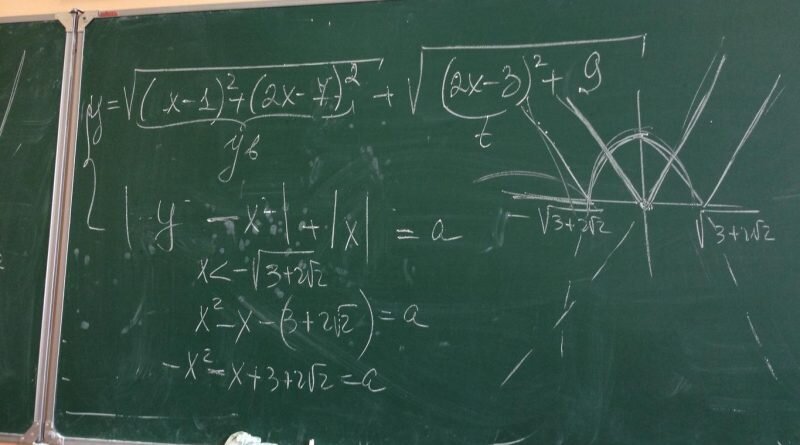 y = √((x-1)²+(2x-7)²) + √((2x-3)²+9)
yв t
| y - x²| + |x| = a
-√(3+2√2) √(3+2√2)
x<-√(3+2√2)
x²-x-(3+2√2)=a
-x²-x+3+2√2=a